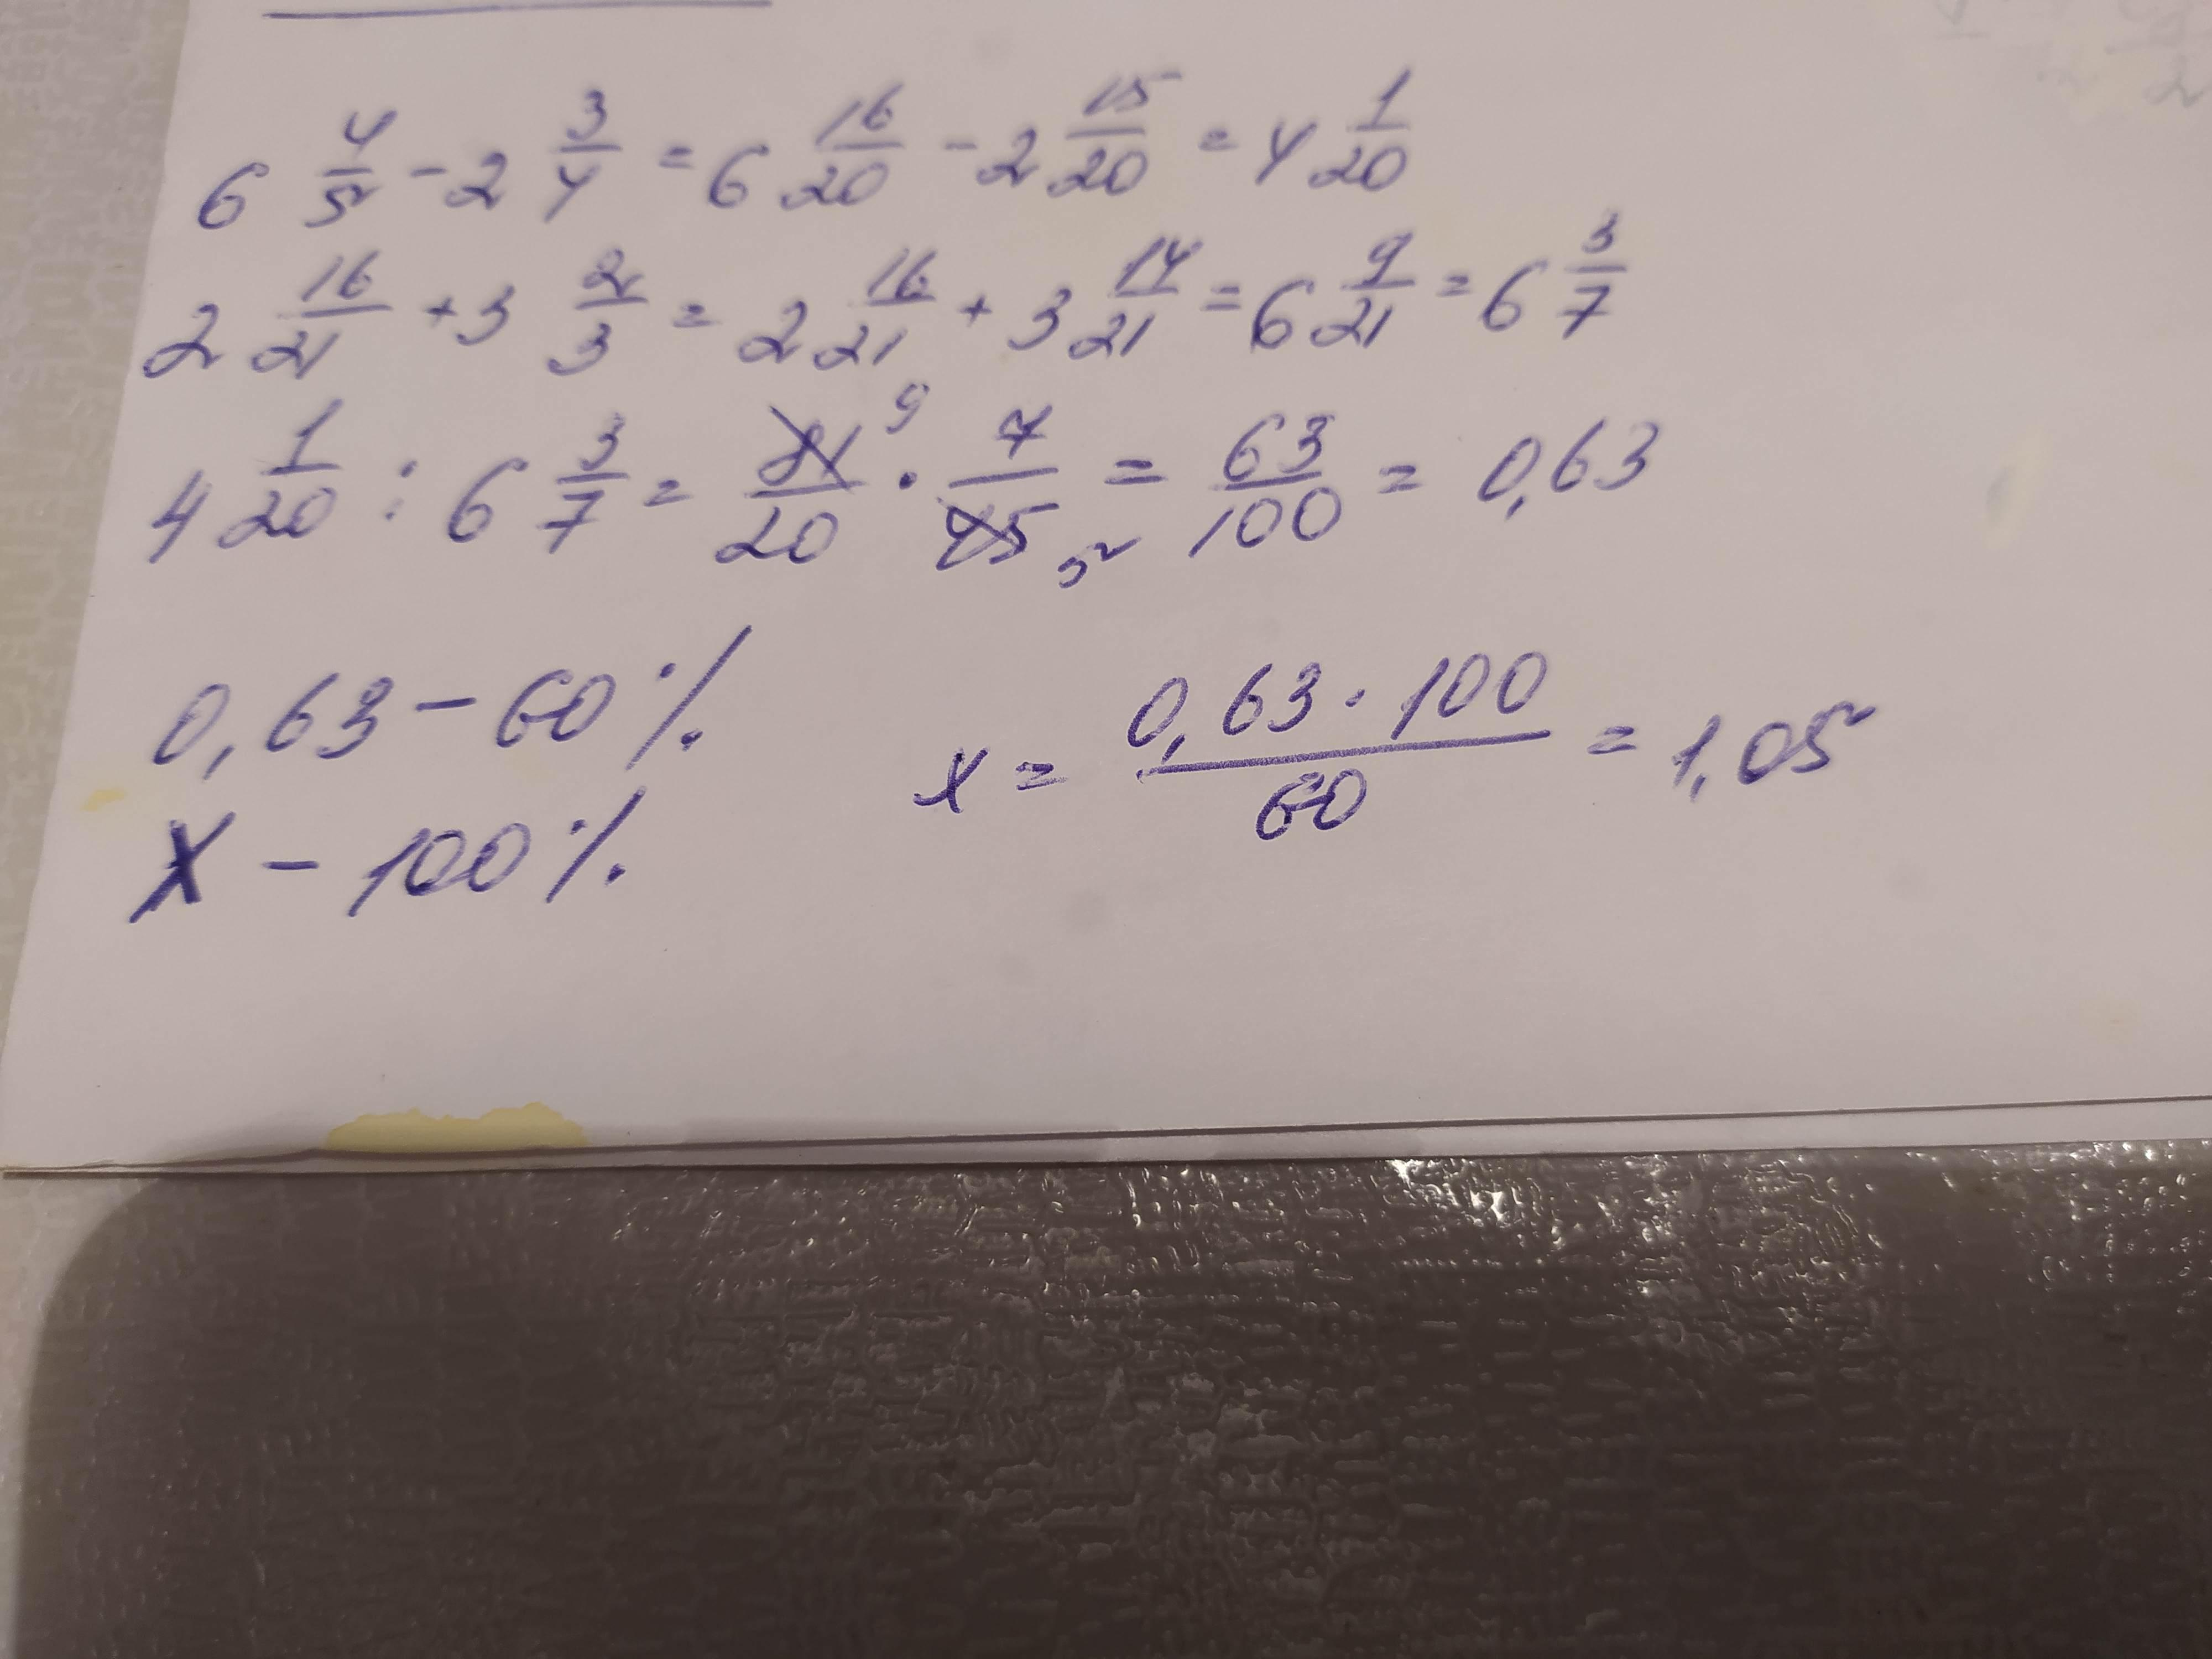 6 4/5 - 2 3/4 = 6 16/20 - 2 15/20 = 4 1/20
2 16/21 + 3 2/3 = 2 16/21 + 3 14/21 = 6 9/21 = 6 3/7
4 1/20 : 6 3/7 = 81/20 9 · 7/45 5 = 63/100 = 0,63
0,63 - 60% x = 0,63 · 100/60 = 1,05
X - 100%